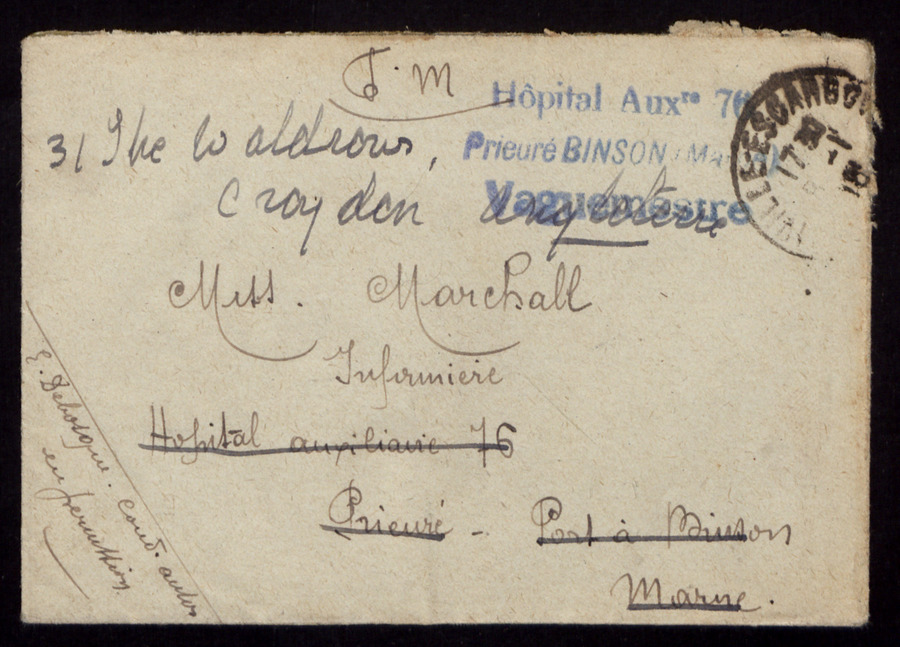 F. M
Hôpital Auxre 76
Prieuré BINSON (Marne)
Vaguemestre
31 The Waldrons,
Croydon Angleterre
Miss. Marchall
Infirmière
Hopital auxiliaire 76
Prieuré - Port à Binson
Marne.
E. Debosque. cond. autos
en permission.
17